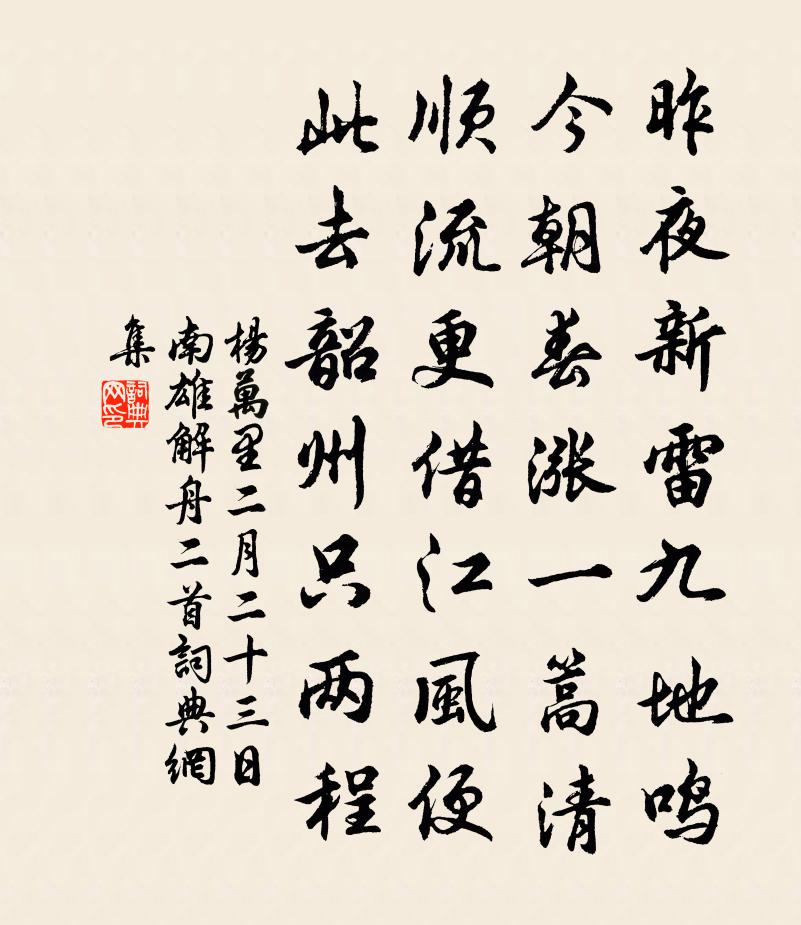 昨夜新雷九地鸣
今朝春涨一篙清
顺流更借江風便
此去韶州只两程
楊萬里二月二十三日
南雄解舟二首詞典網
集
詞典网印